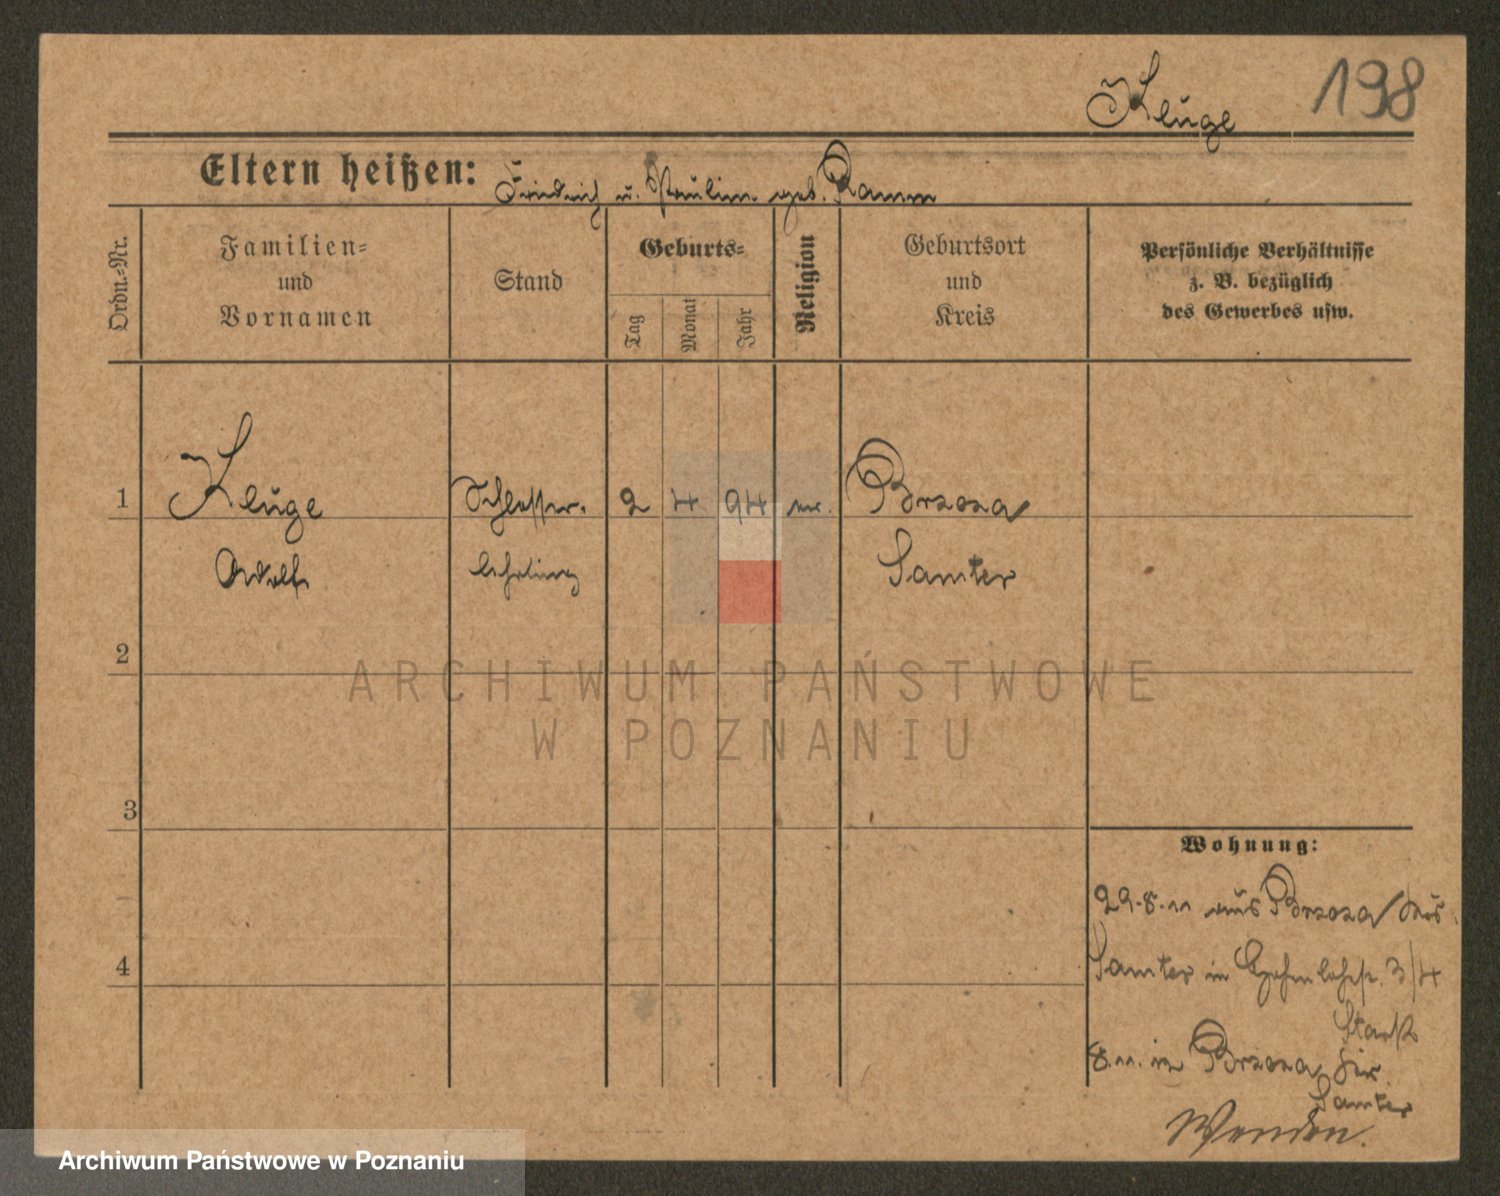 Kluge 198
Eltern heißen: Friedrich u. Paulin. geb. Ramm
Ordn.-Nr.
Familien-
und
Vornamen
Stand
Geburts-
Tag
Monat
Jahr
Religion
Geburtsort
und
Kreis
Persönliche Verhältnisse
z. B. bezüglich
des Gewerbes usw.
1 Kluge Schlosser- 2 4 94 ev. Brzoza
Adolf lehrling Samter
2
ARCHIWUM PAŃSTWOWE
W POZNANIU
3
Wohnung:
29.8.11 aus Brzoza Kreis
4
Samter in 3/4
Stark
8.11. in Brzoza Kr.
Samter
Wenden.
Archiwum Państwowe w Poznaniu